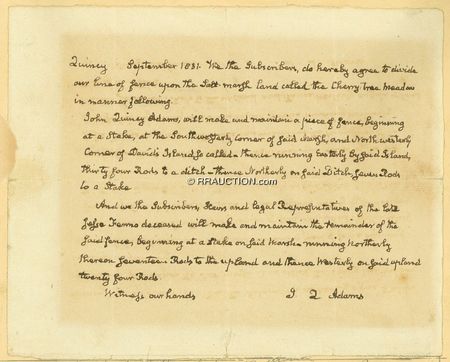 Quincy September 1831. We the Subscribers, do hereby agree to divide
our line of fence upon the Salt-marsh land called the Cherry Tree Meadow
in manner following.
John Quincy Adams, will make and maintain a piece of fence, beginning
at a Stake, at the Southwesterly corner of said Marsh, and Northwesterly
Corner of David's Island so called - thence running Easterly by said Island,
thirty four Rods to a ditch - thence Northerly on said Ditch seven Rods
to a Stake
© RRAUCTION.com
And we the Subscribers, Heirs and legal Representatives of the late
Jesse deceased will make and maintain the remainder of the
said fence, beginning at a Stake on said Marsh running Northerly
thereon seventeen Rods to the upland and thence Westerly on said upland
twenty four Rods.
Witness our hands J. Q Adams